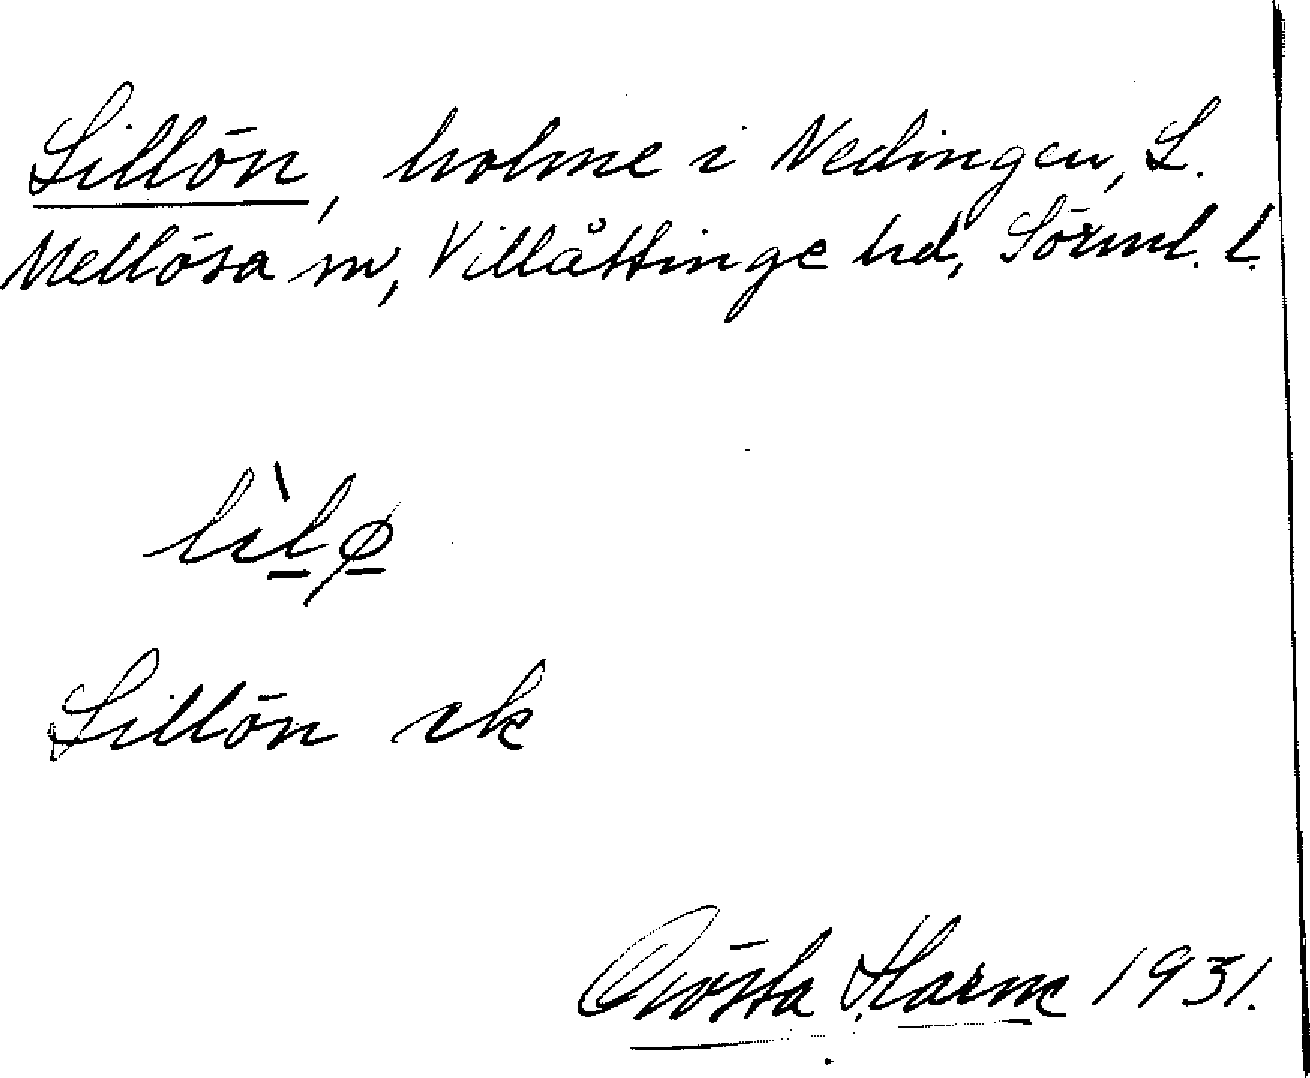 Lillön, holme i Nedingen, L.
Mellösa sn, Villåttinge hd, Sörml. l.
lìlø
Lillön ek
Gösta Harm 1931.